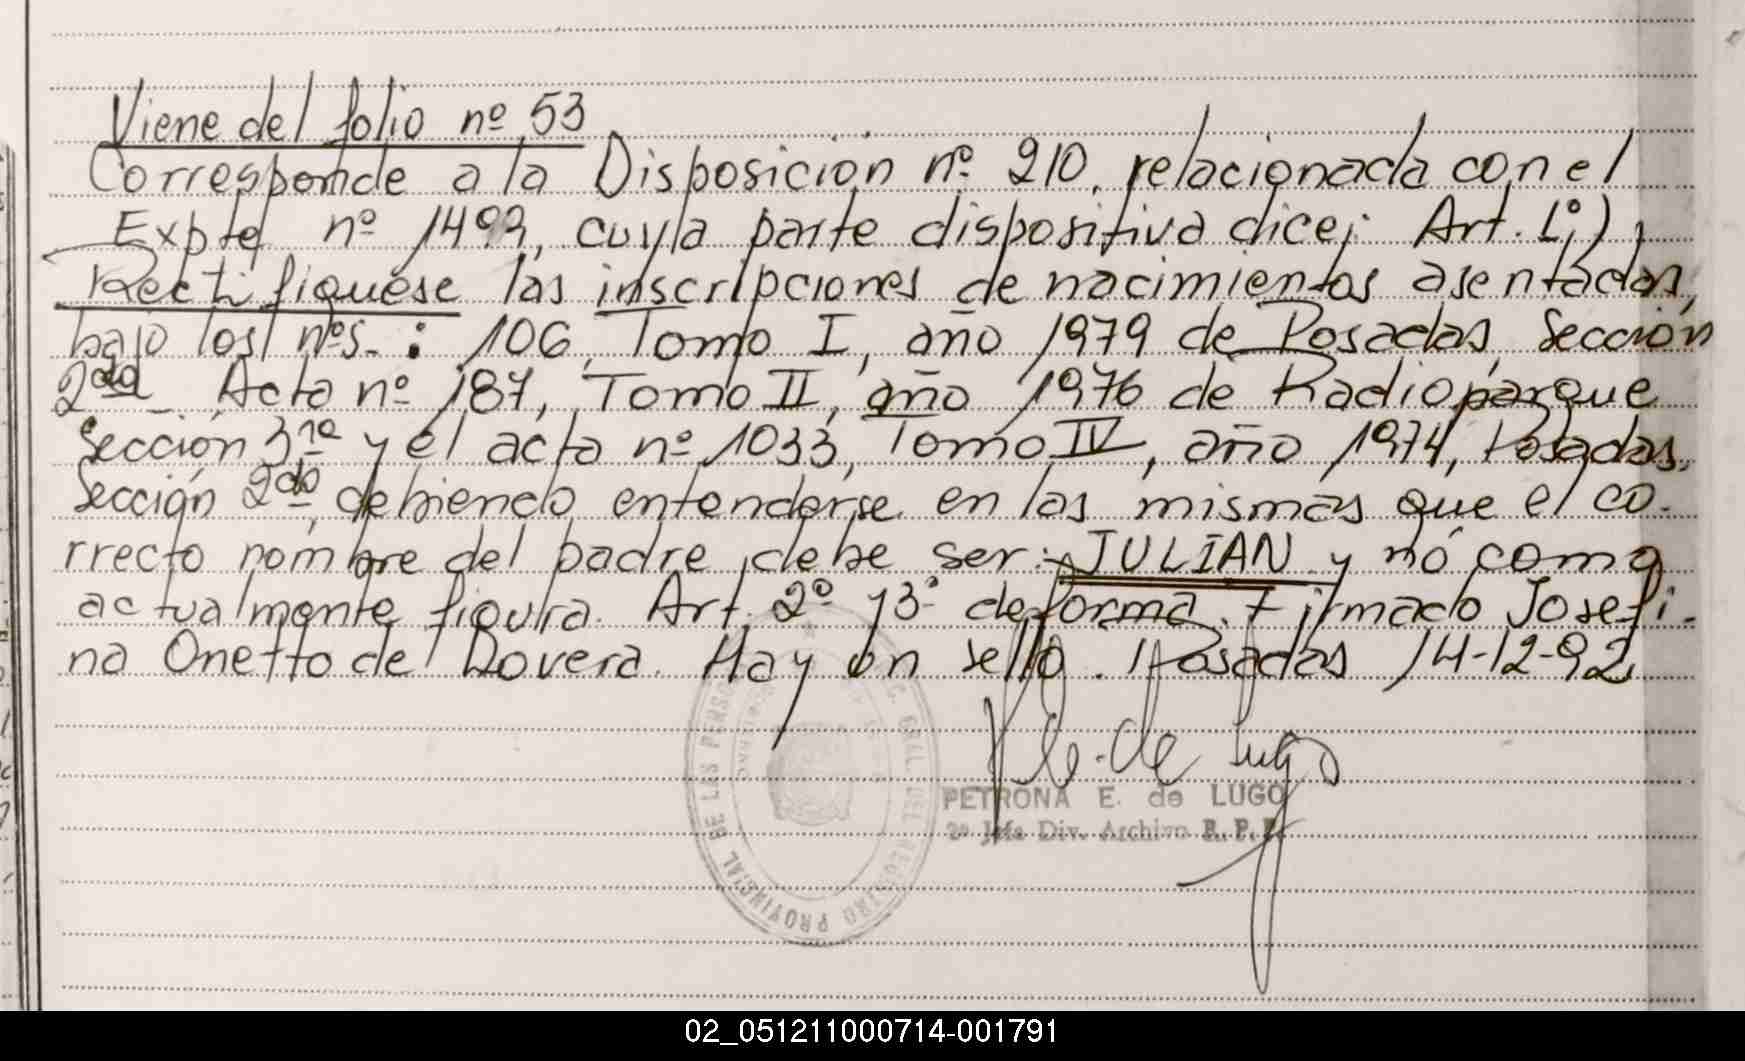 Viene del folio nº 53
Corresponde a la Disposición nº 210, relacionada con el
Expte nº 1493, cuya parte dispositiva dice: Art. 1º)
Rectifiquese las inscripciones de nacimientos asentadas,
bajo los nºs. : 106, Tomo I, año 1979 de Posadas, Sección
2da Acta nº 187, Tomo II, año 1976 de Radioparque
Sección 3ra y el acta nº 1033, Tomo IV, año 1974, Posadas,
Sección 2da, debiendo entenderse en las mismas que el co-
rrecto nombre del padre debe ser: JULIAN y nó como
actualmente figura. Art. 2º y 3º de forma. Firmado Josefi-
na Onetto de Rovera. Hay un sello. Posadas 14-12-92
P. E. de Lugo
PETRONA E. de LUGO
2ª Jefa Div. Archivo R. P. P.
GRAL. DEL REGISTRO PROVINCIAL DE LAS PERSO
02_051211000714-001791